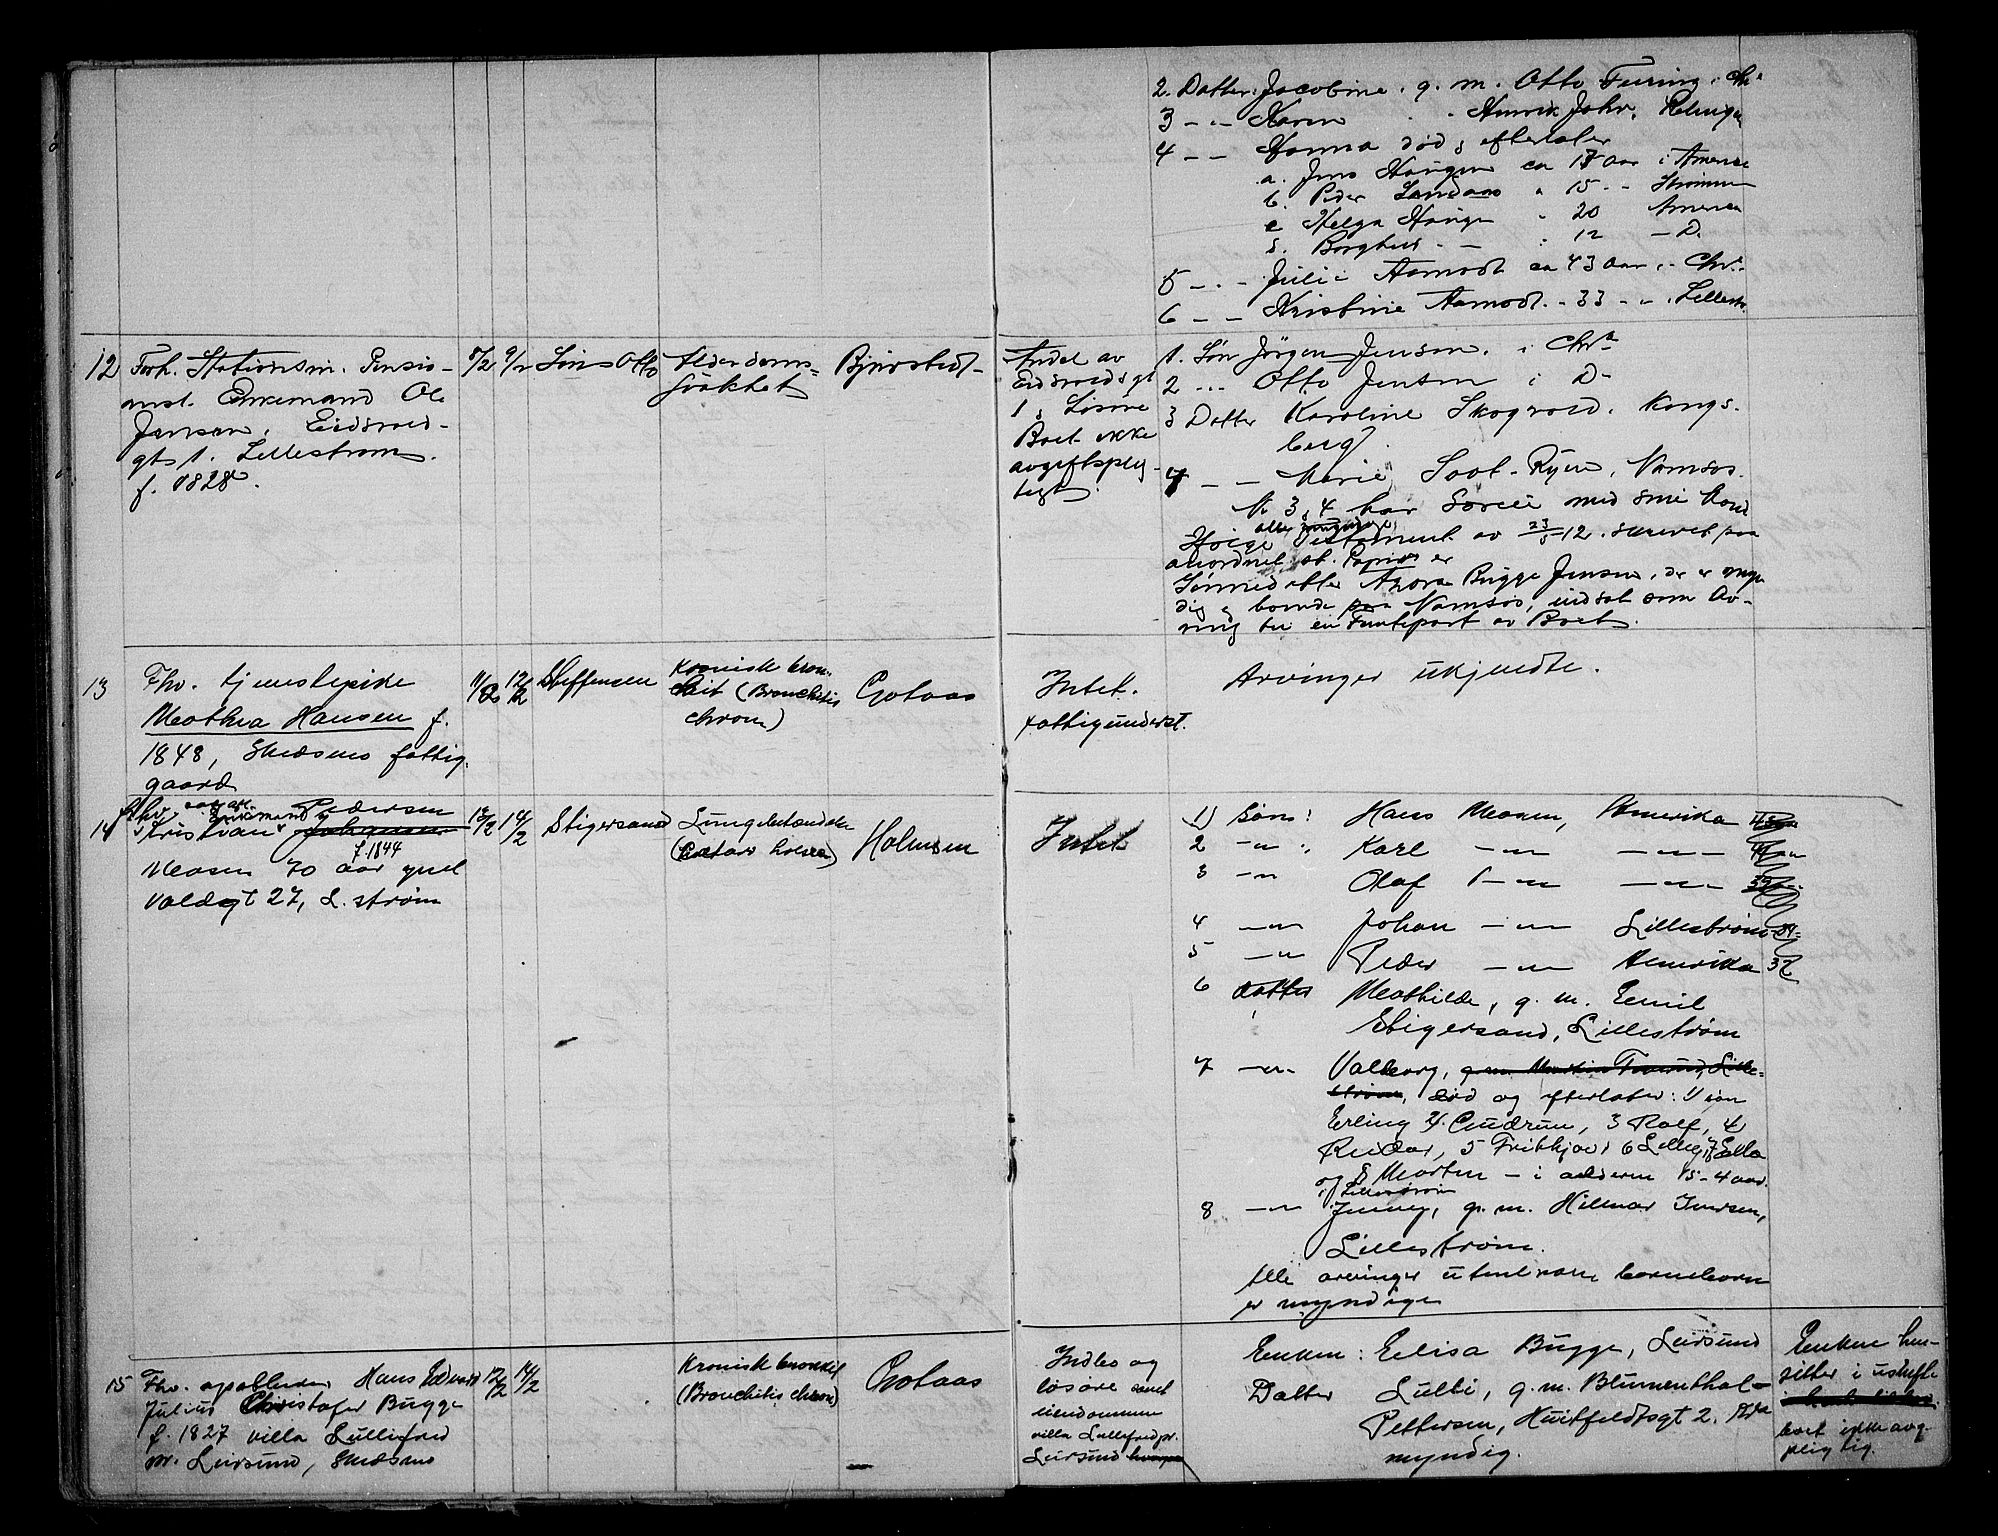 2. Datter: Jacobine. g. m. Otto Furing. i Chr.
3 - - Karen - - Henrik Johr. Relingen
4 - - Hanna død, efterlater
a. Jens Haugen ca 17 aar i Amerika
b. Peder Landaas " 15 - - Strømmen
c Helga Haugen " 20 Amerika
d. Borghild - - " 12 - D.
5 - - Julie Aamodt ca 43 aar i Chr.
6 - - Kristine Aamodt - 33 - - Lillestr.
12 Forh. Stationsm. Pensio-
nist. Enkemand Ole
Jensen, Eidsvold-
gt 1. Lillestrøm.
f. 1828.
8/2 9/2 Søn Otto
Alderdoms-
svakhet
Bjørstedt
Andel av
Eidsvoldsgt
1, Løsøre
Boet ikke
avgiftsplig-
tigt.
1. Søn Jørgen Jensen. i Chr.a
2 ... Otto Jensen i D-
3 Datter Karoline Skogvold. Kongs-
berg.
4 - - Marie Soot-Ryen, Namsos.
Nr 3, 4 har særeie med sine
alle myndige.
Ifølge Testament av 23/5 12. skrevet paa
anordnet st. Papir er
Sønnedatter Thora Bugge Jensen, der er myn
dig, boende paa Namsos, indsat som Ar-
ving til en Femtepart av Boet.
13 Fhv. tjenestepike
Mathea Hansen f.
1848, Skedsmo fattig-
gaard
11/2 12/2 Steffensen
Kronisk bron-
kit (Bronchitis
chron)
Gotaas
Intet.
fattigunderst.
Arvinger ukjendte.
14 fhv. enkemand Pedersen
Kristian Johansen
f. 1844
Moen 70 aar gml
Voldgt 27, L. strøm
12/2 14/2 Stigersand
Lungebetændelse
Holmsen
Intet
1) Søn: Hans Moen, Amerika
2 -"- Karl -"- -"-
3 -"- Olaf -"- -"-
4 -"- Johan -"- Lillestrøm
5 -"- Peder -"- Amerika 32
6 datter Mathilde, g. m. Emil
Stigersand, Lillestrøm
7 -"- Valborg, g. m. Martin Lille-
strøm, død og efterlater: 1 søn
Erling 2. Gudrun, 3 Rolf, 4
Reidar, 5 Frithjov 6 Lilly, 7 Ella
og 8 Morten - i alderen 15-4 aar.
i Lillestrøm
8 -"- Jenny, g. m. Hilmar Iversen,
Lillestrøm.
Alle arvinger utenl barnebarn
er myndige
15 Fhv. apotheker Hans Edvard
Julius Christofer Bugge
f. 1827 villa Lullifred
pr. Leirsund, Skedsmo
12/2 14/2
Kronisk bronkit
(Bronchitis chron)
Gotaas
Indbo og
løsøre samt
eiendommen
villa Lullifred pr.
Leirsund
Enken: Elisa Bugge, Leirsund
Datter Lulli, g. m. Blumenthal-
Pettersen, Huitfeldtsgt 2. Kr.a
myndig.
Enken hen-
sitter i uskifte
boet ikke avg.
pligtig.